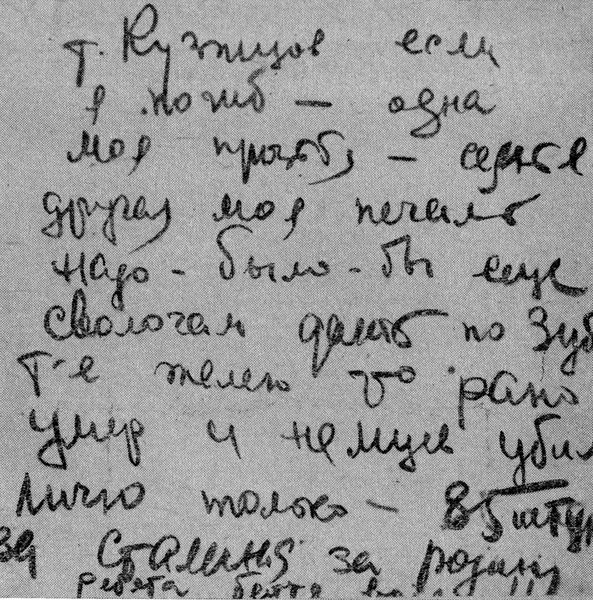 т. Кузнецов если
я погиб — одна
моя просьба — семья
другая моя печаль
надо - было - бы еще
сволочам дать по зуб
т-е жалею что рано
умер и немцев убил
лично только — 85 штук
за Сталина за родину
ребята бейте !!!